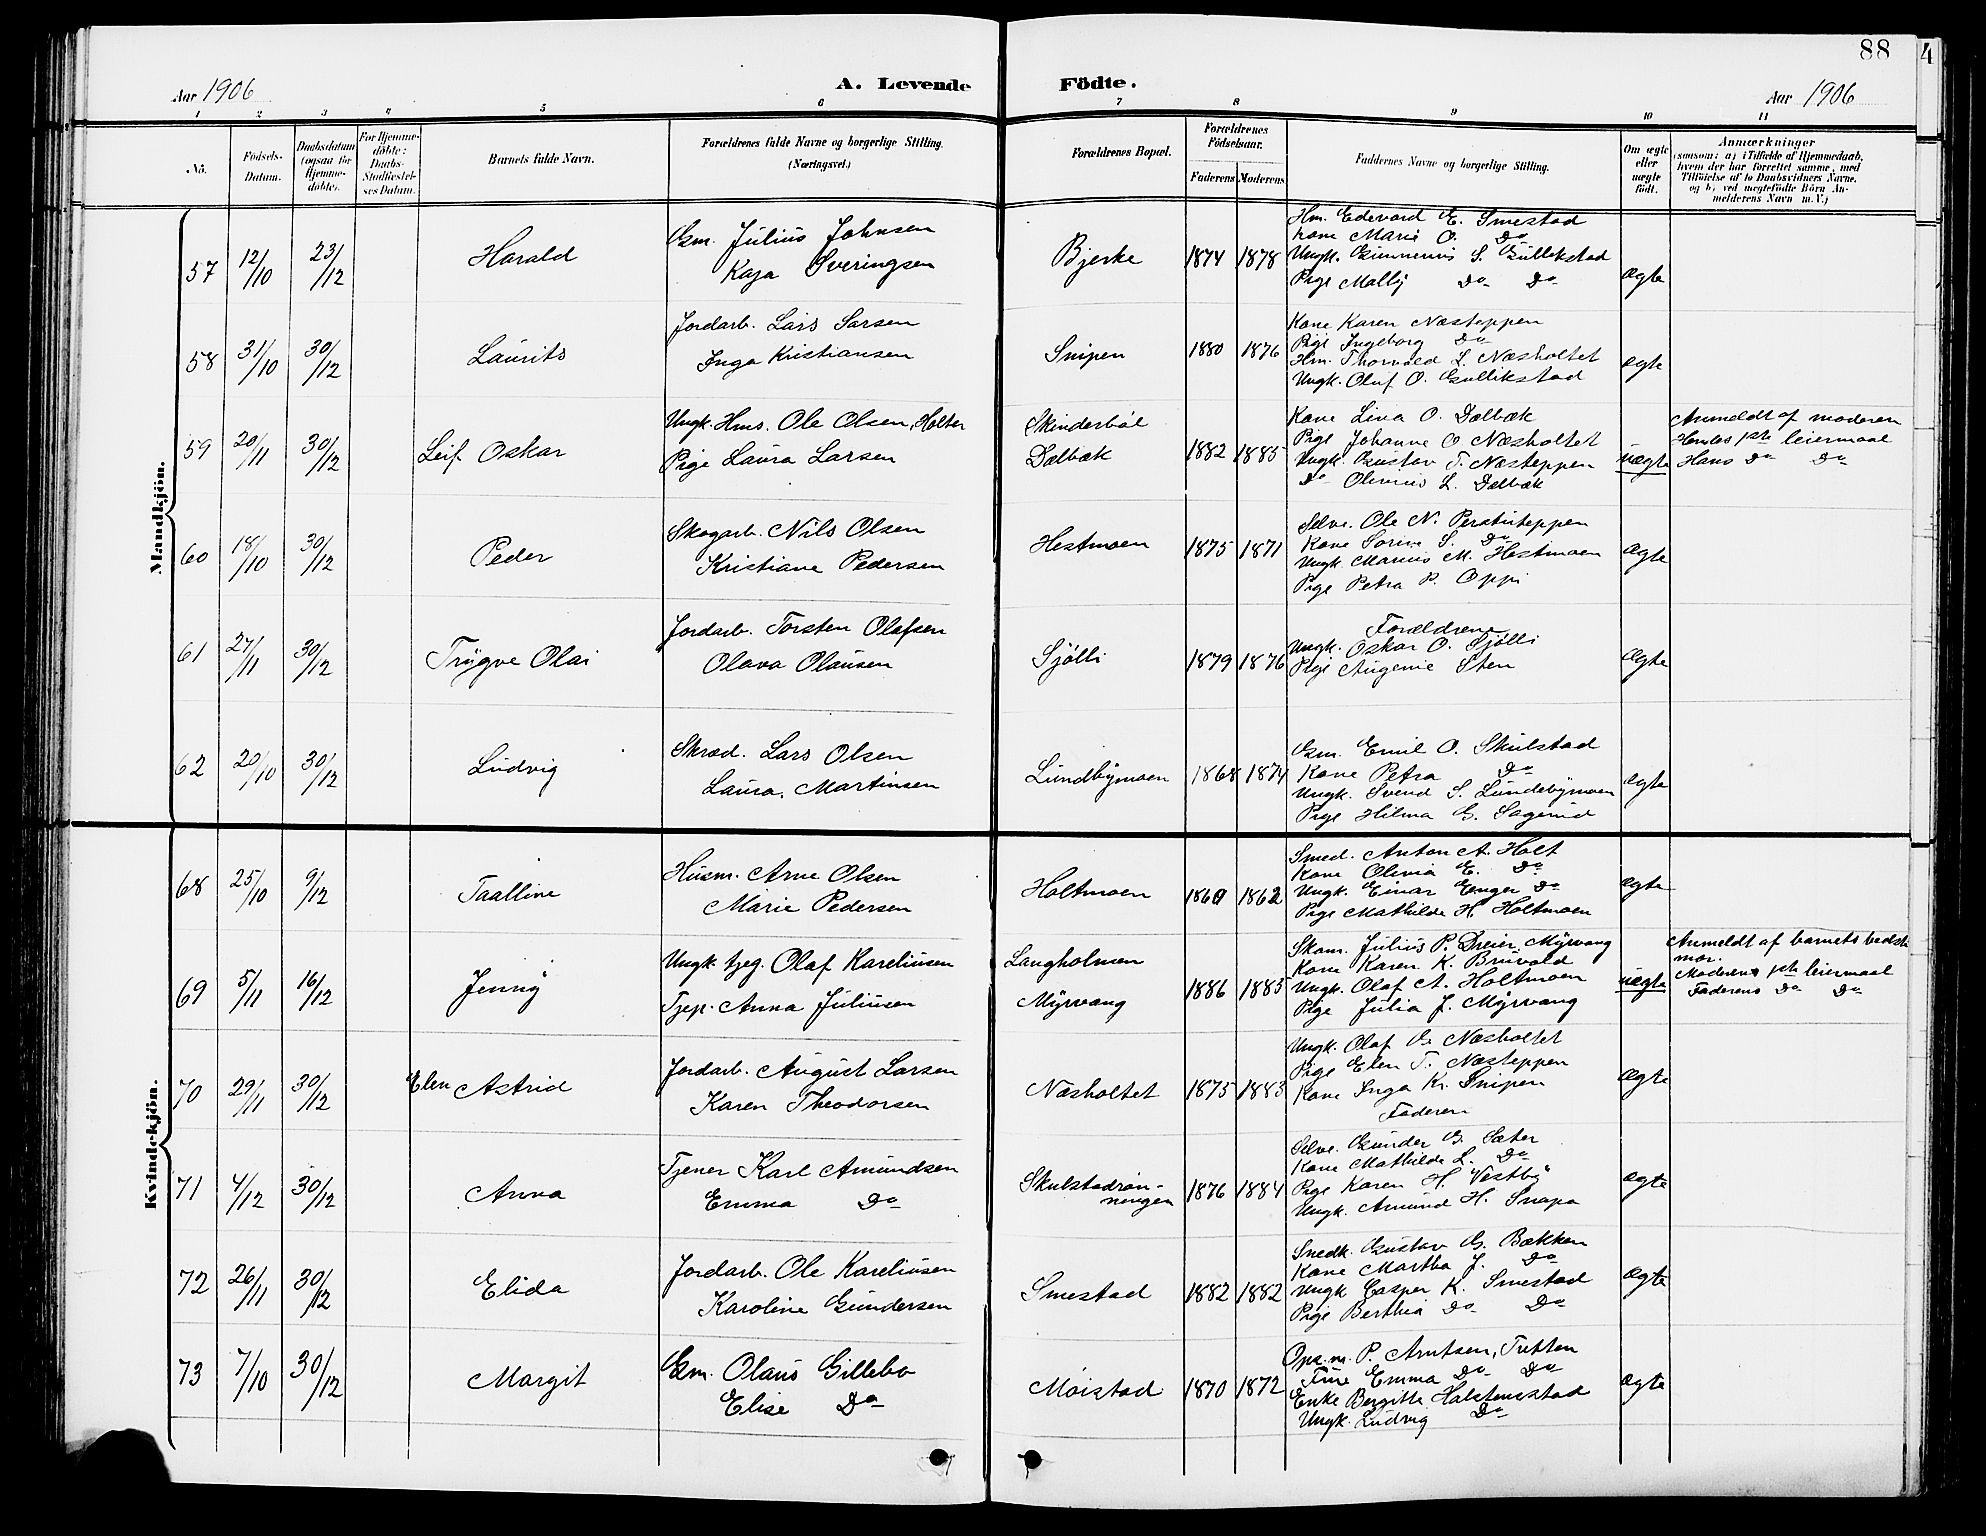 88
4
Aar 1906
A. Levende Födte.
Aar 1906
1 2 3 4 5 6 7 8 9 10 11
No.
Födsels-Datum.
Daabsdatum (ogsaa for Hjemmedöbte).
For Hjemmedöbte: Daabs-Stadfæstelses Datum.
Barnets fulde Navn.
Forældrenes fulde Navne og borgerlige Stilling. (Næringsvei.)
Forældrenes Bopæl.
Forældrenes Födselsaar.
Faderens Moderens
Faddernes Navne og borgerlige Stilling.
Om ægte eller uægte födt.
Anmærkninger
(saasom: a) i Tilfælde af Hjemmedaab, hvem der har forrettet samme, med Tilföielse af to Daabsvidners Navne, og b) ved uægtefödte Börn Anmelderens Navn m. V.)
Mandkjön.
57 12/10 23/12 Harald
Gm. Julius Johnsen
Kaja Sveringsen
Bjerke 1874 1878
Hm. Edevard E. Smestad
Kone Marie O. Do
Ungk. Gunnerius S. Gullikstad
Pige Mally Do Do
Ægte
58 31/10 30/12 Laurits
Jordarb. Lars Larsen
Inga Kristiansen
Snipen 1880 1876
Kone Karen Næsteppen
Pige Ingeborg Do
Hm. Thorvald L. Næsholtet
Ungk. Oluf O. Gullikstad
Ægte
59 20/11 30/12 Leif Oskar
Ungk. Hms. Ole Olsen, Holter
Pige Laura Larsen
Skinderböl
Dælbæk
1882 1885
Kone Lina O. Dælbæk
Pige Johanne O Næsholtet
Ungk. Gustav T. Næsteppen
Do Olinius L. Dælbæk
uægte
Anmeldt af moderen
Hendes 1ste leiermaal
Hans Do Do
60 18/10 30/12 Peder
Skogarb. Nils Olsen
Kristiane Pedersen
Hestmoen 1875 1871
Selve. Ole N. Perstuteppen
Kone Sorine S. Do
Ungk. Marius M. Hestmoen
Pige Petra P. Oppi
Ægte
61 27/11 30/12 Trygve Olai
Jordarb. Torsten Olafsen
Olava Olausen
Sjölli 1879 1876
Forældrene
Ungk. Oskar O. Sjölli
Pige Augenie Sten
Ægte
62 20/10 30/12 Ludvig
Skræd. Lars Olsen
Laura Martinsen
Lundbymoen 1868 1874
Gm. Emil O. Skulstad
Kone Petra Do
Ungk. Svend S. Lundebymoen
Pige Hilma G. Sagerud
Ægte
Kvindekjön.
68 25/10 9/12 Taalline
Husm. Arne Olsen
Marie Pedersen
Holtmoen 1860 1862
Smed. Anton A. Holt
Kone Olivia E. Do
Ungk. Einar Enger Do
Pige Mathilde H. Holtmoen
Ægte
69 5/11 16/12 Jenny
Ungk. tjeg. Olaf Kareliusen
Tjep. Anna Juliusen
Langholmen
Myrvang
1886 1883
Skom. Julius P. Dreier Myrvang
Kone Karen K. Bruvold
Ungk. Olaf A. Holtmoen
Pige Julia J. Myrvang
uægte
Anmeldt af barnets bedste
mor.
Moderens 1ste leiermaal
Faderens Do Do
70 29/11 30/12 Elen Astrid
Jordarb. August Larsen
Karen Theodorsen
Næsholtet 1875 1883
Ungk. Olaf O. Næsholtet
Pige Elen T. Næsteppen
Kone Inga Kr. Snipen
Faderen
Ægte
71 4/12 30/12 Anna
Tjener Karl Amundsen
Emma Do
Skulstadrön-
ningen
1876 1884
Selve. Gunder G. Sæter
Kone Mathilde L. Do
Pige Karen H. Vestby
Ungk. Amund H. Snapa
Ægte
72 26/11 30/12 Elida
Jordarb. Ole Kareliusen
Karoline Gundersen
Smestad 1882 1882
Snedk. Gustav G. Bækken
Kone Martha J. Do
Ungk Casper K. Smestad
Pige Berthea Do Do
Ægte
73 7/10 30/12 Margit
Gm. Olaus Gillebo
Elise Do
Moistad 1870 1872
Ops.m. P. Arntsen, Tretten
Frue Emma Do Do
Enke Bergitte Halstensstad
Ungk. Ludvig Do
Ægte